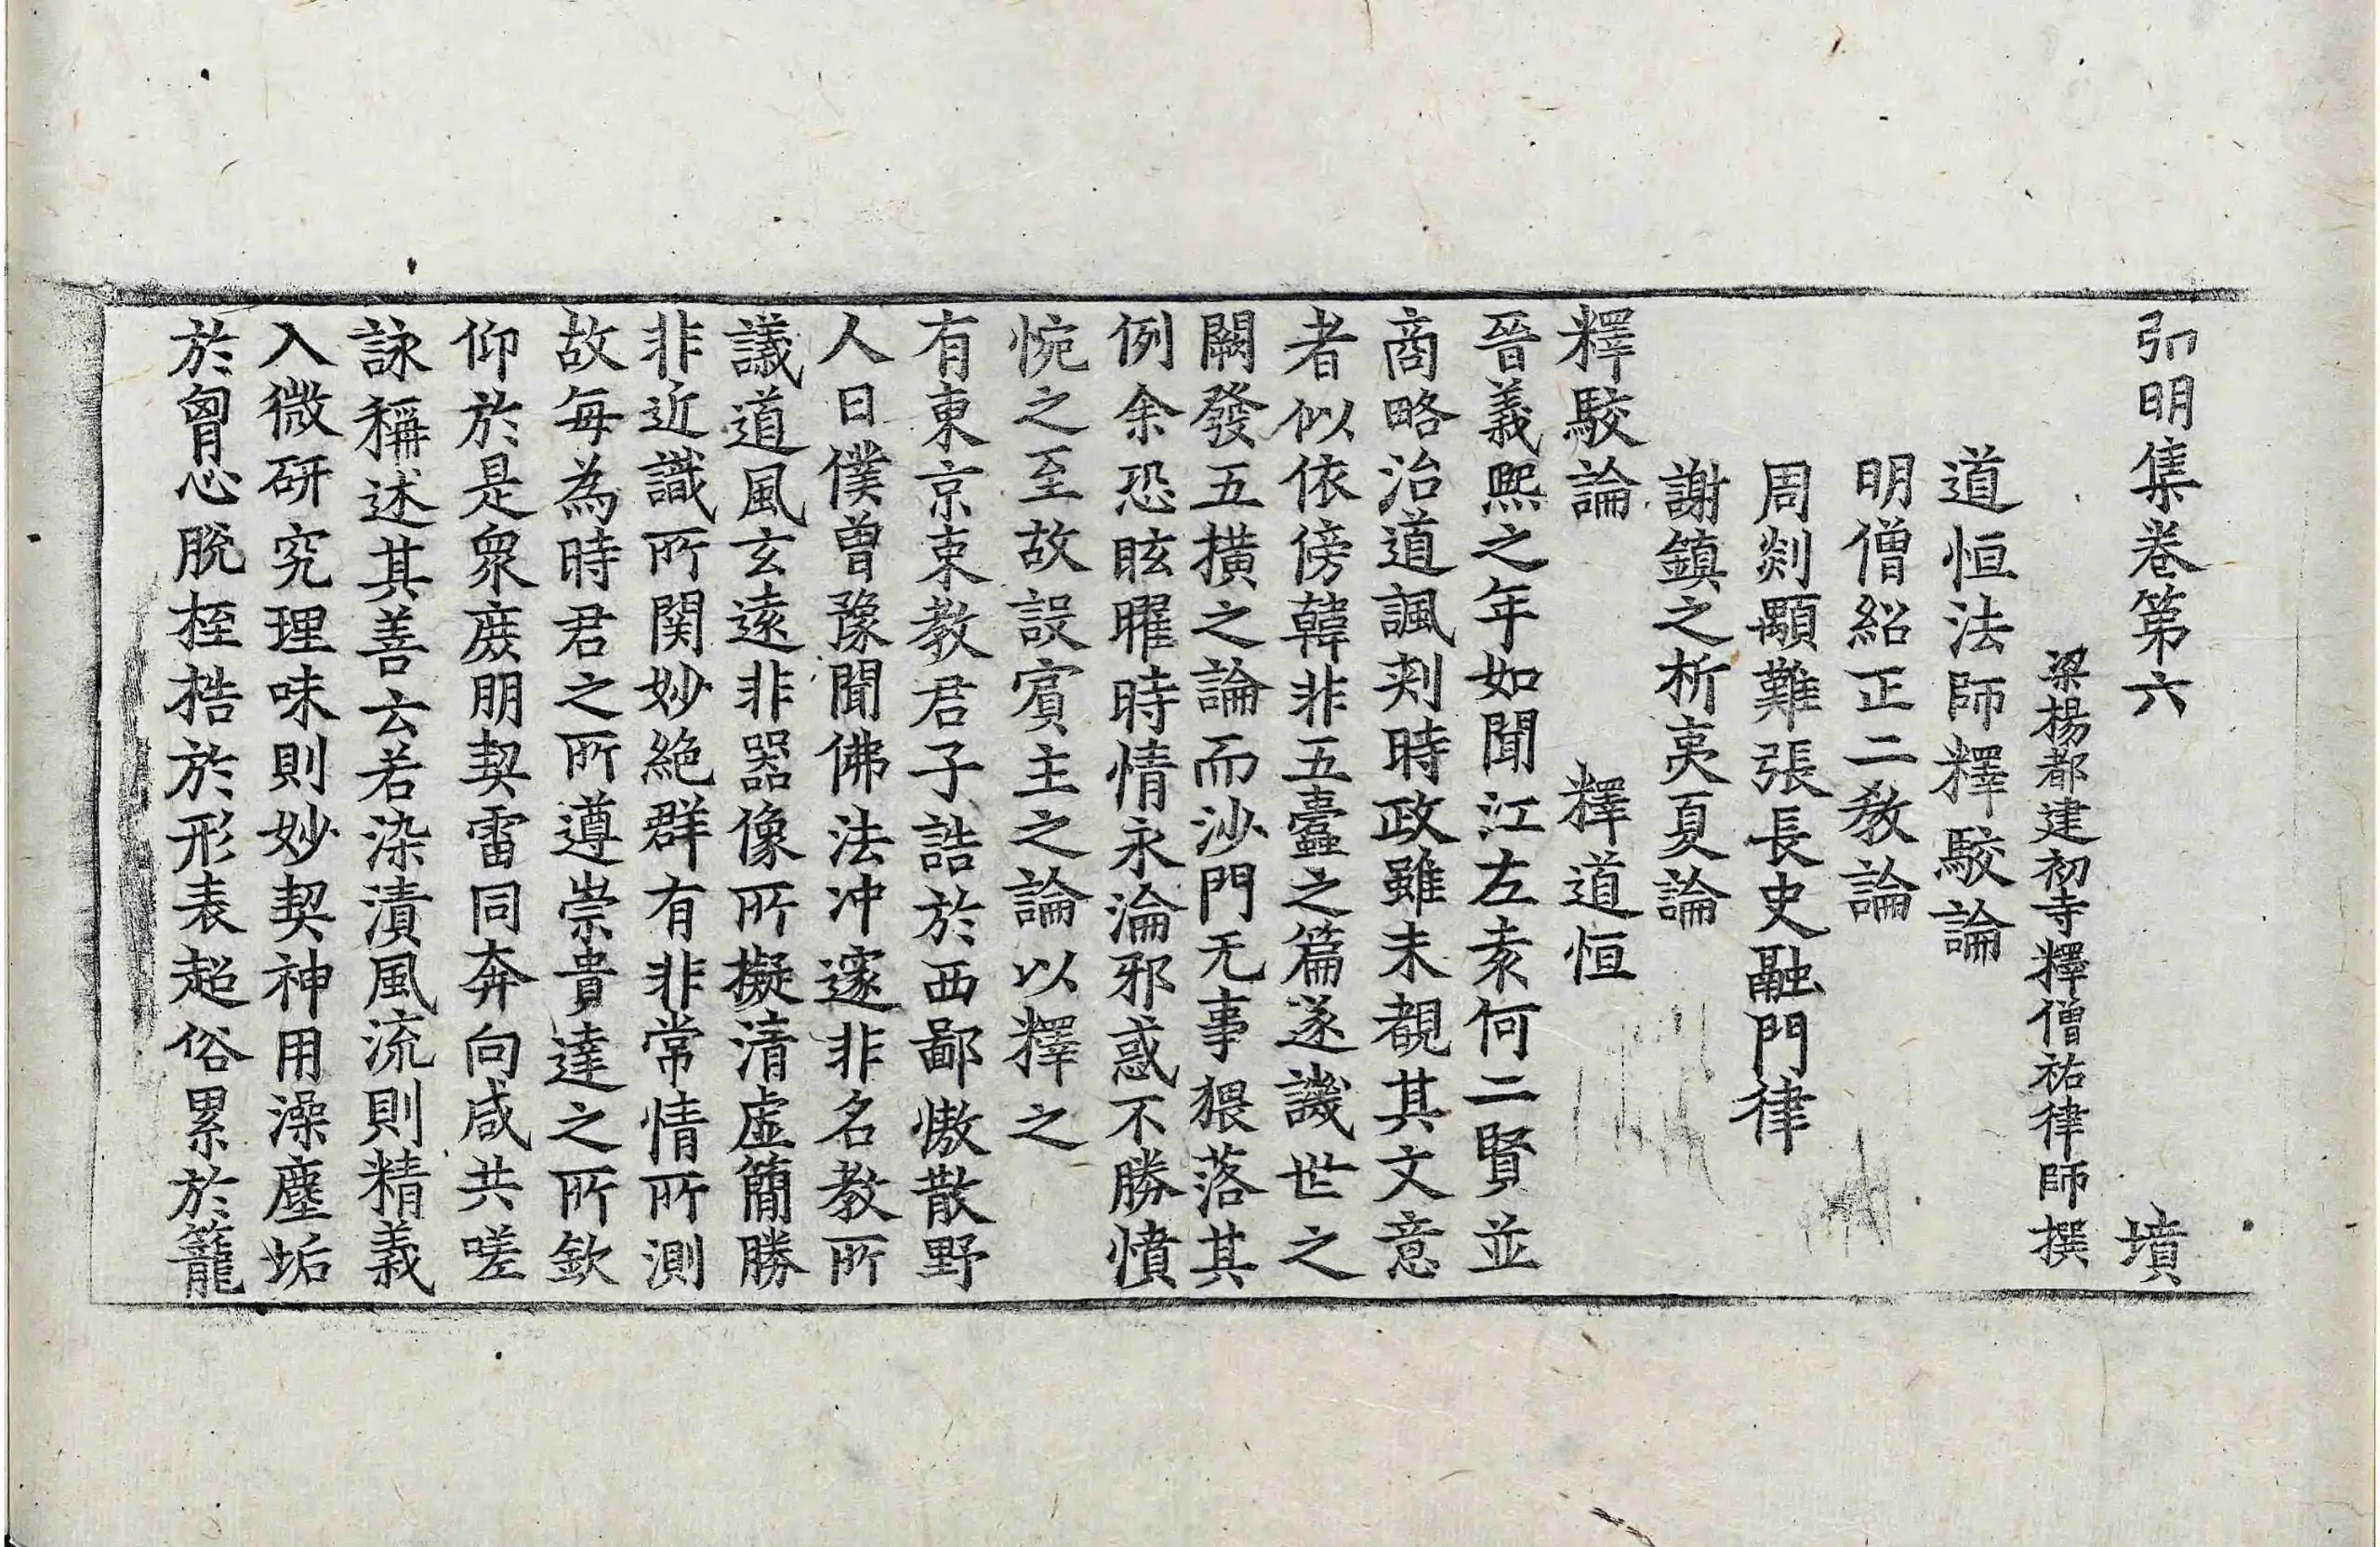 弘明集卷第六 墳
梁楊都建初寺釋僧祐律師撰
道恒法師釋駮論
明僧紹正二教論
周剡顒難張長史融門律
謝鎮之析夷夏論
釋駮論 釋道恒
晉義熙之年如聞江左袁何二賢並
商略治道諷刾時政雖未覩其文意
者似依傍韓非五蠹之篇遂譏世之
闕發五橫之論而沙門无事猥落其
例余恐眩曜時情永淪邪惑不勝憤
惋之至故設賓主之論以釋之
有東京束教君子詰於西鄙慠散野
人曰僕曾豫聞佛法沖邃非名教所
議道風玄遠非器像所擬清虛簡勝
非近識所関妙絶群有非常情所測
故每為時君之所遵崇貴達之所欽
仰於是衆庶朋契雷同奔向咸共嗟
詠稱述其善云若染漬風流則精義
入微研究理味則妙契神用澡塵垢
於胷心脫桎梏於形表超俗累於籠